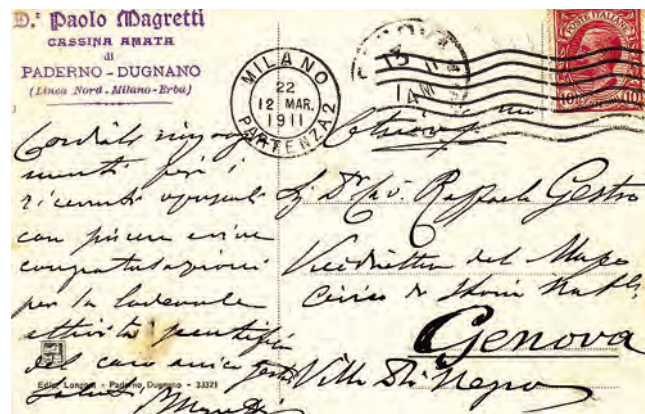 D.r Paolo Magretti
CASSINA AMATA
di
PADERNO-DUGNANO
(Linea Nord-Milano-Erba)
MILANO
22
12 MAR.
1911
PARTENZA 2
POSTE ITALIANE
10
10
Cordiali ringrazia
menti per i
ricevuti opuscoli
con più vive
congratulazioni
per la lodevole
attività scientifica
del caro amico Gestro
Saluti
Magretti
Raffaele Gestro
Vicedirettore del Museo
Civico di Storia Nat.
Genova
Villetta Di Negro
Ediz. Longoni - Paderno Dugnano - 33321